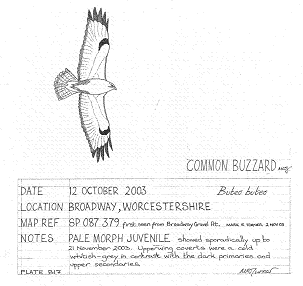 COMMON BUZZARD
DATE 12 OCTOBER 2003 Buteo buteo
LOCATION BROADWAY, WORCESTERSHIRE
MAP REF SP 087 379 first seen from Broadway Gravel Pit. MARK R TURNER 2 NOV 03
NOTES PALE MORPH JUVENILE showed sporadically up to
21 November 2003. Upperwing coverts were a cold
whitish-grey in contrast with the dark primaries and
upper secondaries.
PLATE